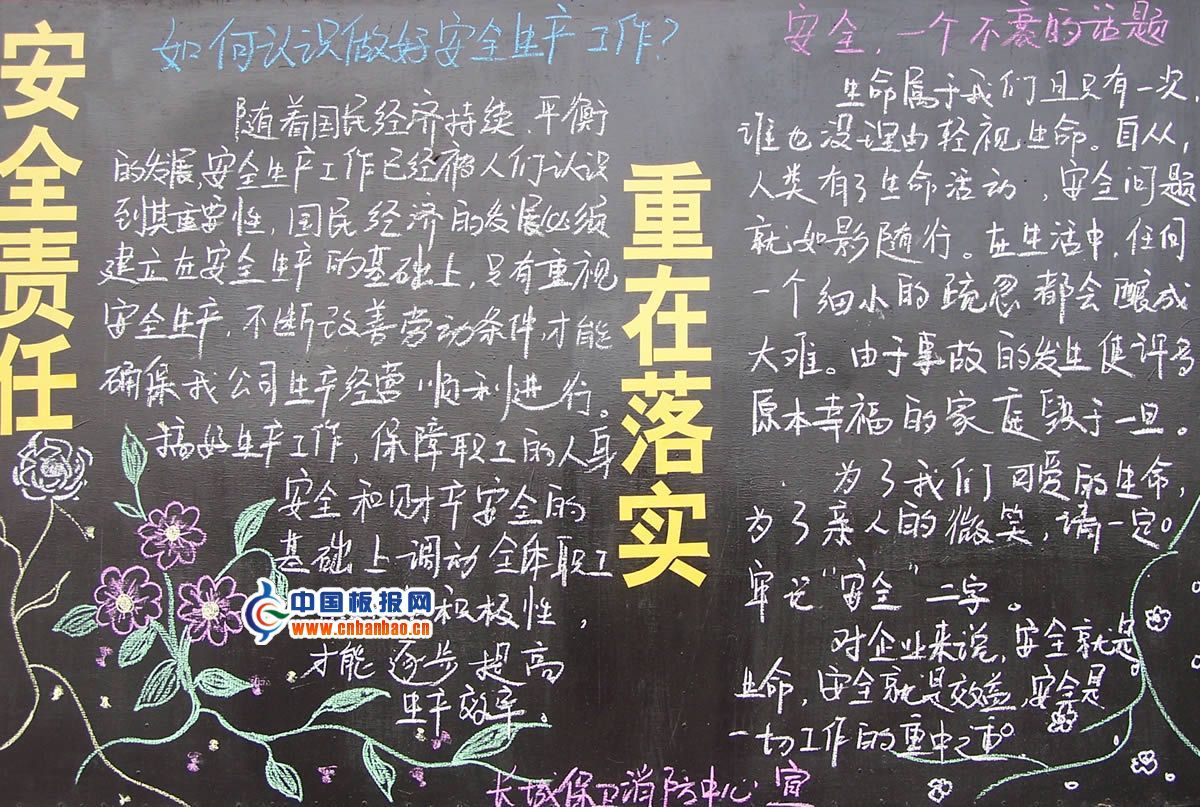 安全责任
重在落实
如何认识做好安全生产工作？
随着国民经济持续、平衡
的发展,安全生产工作已经被人们认识
到其重要性，国民经济的发展必须
建立在安全生产的基础上，只有重视
安全生产，不断改善劳动条件,才能
确保我公司生产经营顺利进行。
搞好生产工作，保障职工的人身
安全和财产安全的
基础上调动全体职工
积极性，
才能逐步提高
生产效率。
中国板报网
www.cnbanbao.cn
安全，一个不衰的话题
生命属于我们且只有一次，
谁也没理由轻视生命。自从，
人类有了生命活动，安全问题
就如影随行。在生活中，任何
一个细小的疏忽都会酿成
大难。由于事故的发生使许多
原本幸福的家庭毁于一旦。
为了我们可爱的生命，
为了亲人的微笑，请一定。
牢记“安全”二字。
对企业来说，安全就是
生命，安全就是效益，安全是
一切工作的重中之重。
长城保卫消防中心 宣